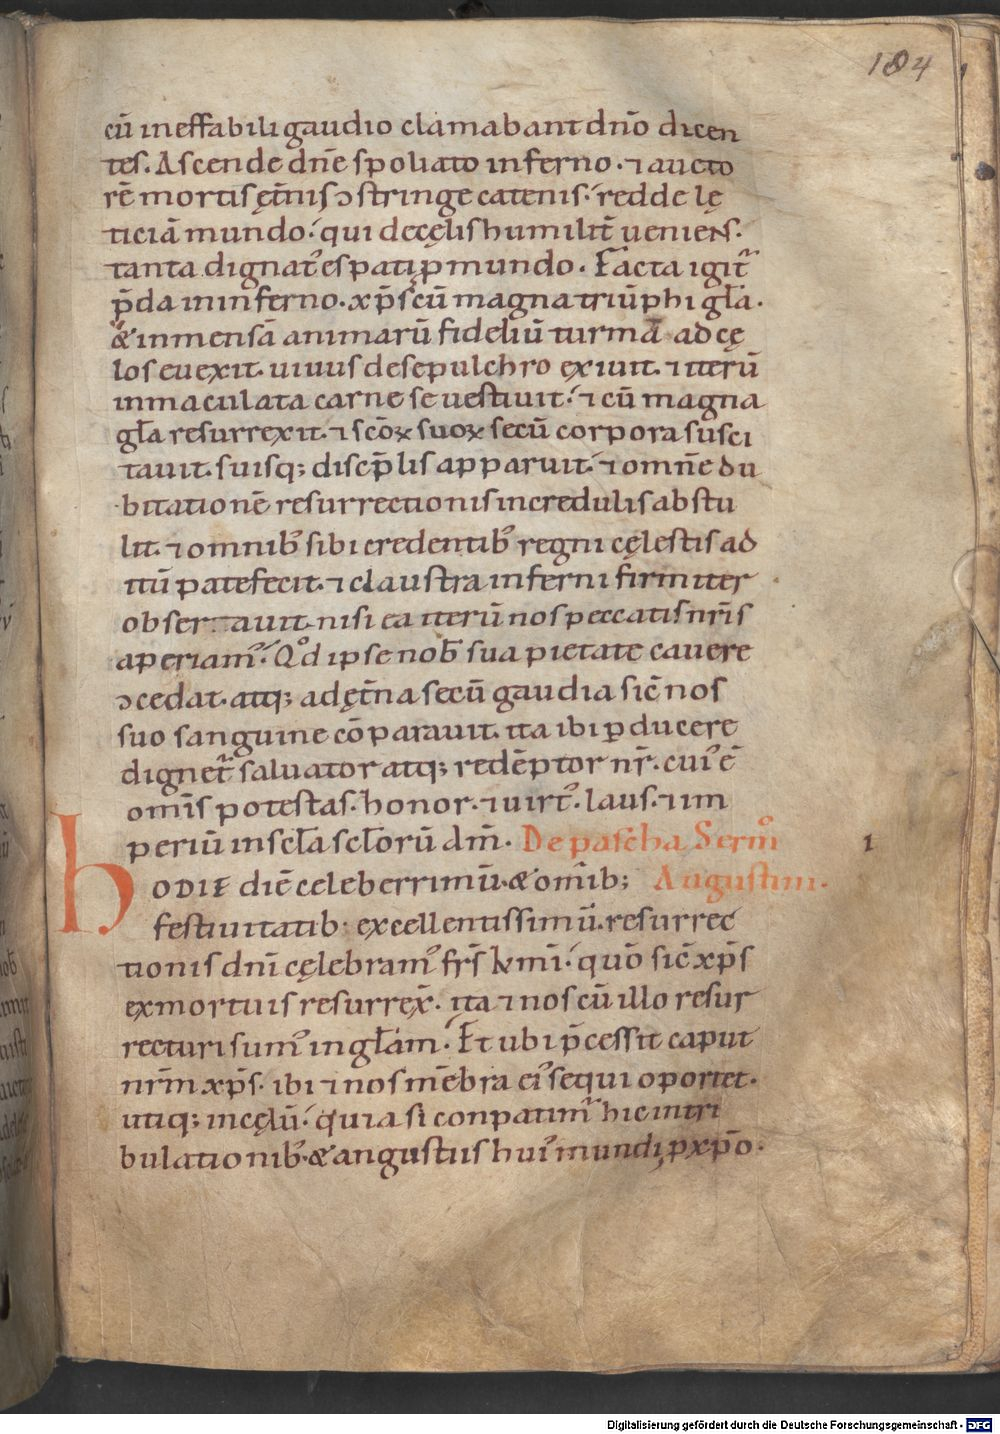 184
cū ineffabili gaudio clamabant dn̄o dicen
tes. Ascende dn̄e spoliato inferno. ⁊ aucto
rē mortis ęt̄nis ɔstringe catenis. redde lę
ticiā mundo. qui de cęlis humilit̄ veniens.
tanta dignat᷒ es pati ꝑ mundo. Facta igit᷑
p̄da in inferno. xp̄s cū magna triūphi gl̄a.
& inmensā animarū fideliū turmā ad cę
los euexit. uiuus de sepulchro exiuit. ⁊ iterū
inmaculata carne se uestiuit. ⁊ cū magna
gl̄a resurrexit. ⁊ scōꝝ suoꝝ secū corpora susci
tauit. suisq; discip̄lis apparuit. ⁊ omnē du
bitationē resurrectionis incredulis abstu
lit. ⁊ omnib᷒ sibi credentib᷒ regni cęlestis ad
itū patefecit. ⁊ claustra inferni firmiter
obserauit. nisi ea iterū nos peccatis nr̄is
aperiam᷒. Qd̊ ipse nob̄ sua pietate cauere
ɔcedat. atq; ad ęt̄na secū gaudia sic̄ nos
suo sanguine cōparauit. ita ibi ꝑducere
dignet᷑ saluator atq; redēptor nr̄. cui᷒ ē
om̄is potestas. honor. ⁊ uirt᷒. laus. ⁊ im
periū in scl̄a scl̄orū am̄. De pascha Sermo
1
hodie diē celeberrimū. & om̄ib; Augustini.
festiuitatib. excellentissimū. resurrec
tionis dn̄i cęlebram᷒ frs̄ km̄i. quō sic̄ xp̄s
ex mortuis resurrex̄. ita ⁊ nos cū illo resur
recturi sum᷒ in gl̄am. Et ubi p̄cessit caput
nr̄m xp̄s. ibi ⁊ nos mēbra ei᷒ sequi oportet.
utiq; in cęlū. quia si conpatim᷑ hic in tri
bulationib᷒. & angustiis hui᷒ mundi ꝑ xp̄o.
Digitalisierung gefördert durch die Deutsche Forschungsgemeinschaft - DFG